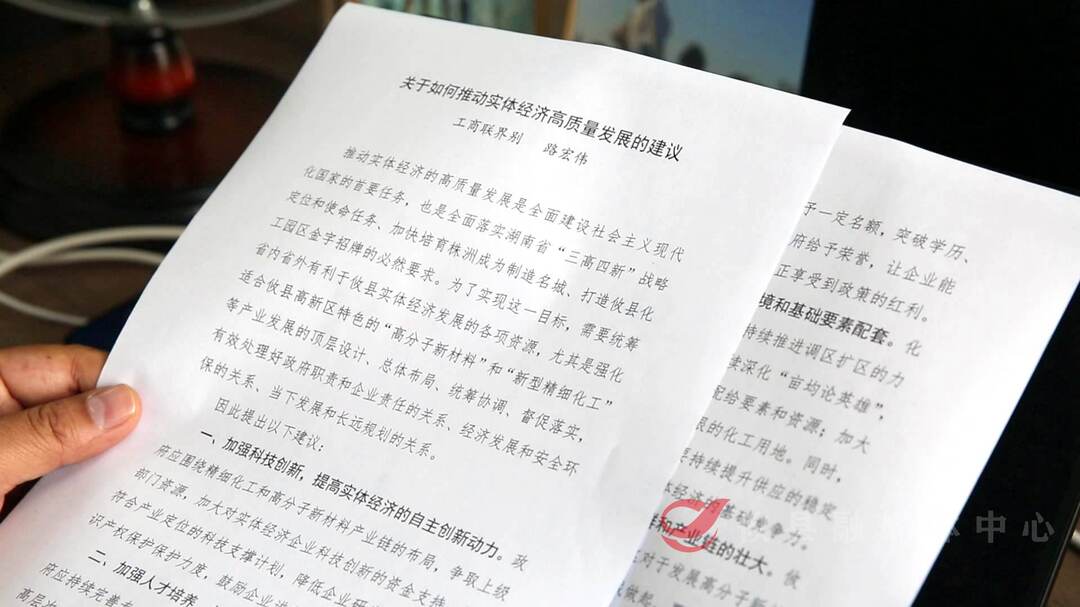 关于如何推动实体经济高质量发展的建议
工商联界别 路宏伟
推动实体经济的高质量发展是全面建设社会主义现代
化国家的首要任务，也是全面落实湖南省“三高四新”战略
定位和使命任务、加快培育株洲成为制造名城、打造攸县化
工园区金字招牌的必然要求。为了实现这一目标，需要统筹
省内省外有利于攸县实体经济发展的各项资源，尤其是强化
适合攸县高新区特色的“高分子新材料”和“新型精细化工”
等产业发展的顶层设计、总体布局、统筹协调、督促落实，
有效处理好政府职责和企业责任的关系、经济发展和安全环
保的关系、当下发展和长远规划的关系。
因此提出以下建议：
一、加强科技创新，提高实体经济的自主创新动力。政
府应围绕精细化工和高分子新材料产业链的布局，争取上级
部门资源，加大对实体经济企业科技创新的资金支持
符合产业定位的科技支撑计划，降低企业研
识产权保护保护力度，鼓励企业进
二、加强人才培养
府应持续完善
高层次
予一定名额，突破学历、
府给予荣誉，让企业能
正享受到政策的红利。
境和基础要素配套。化
持续推进调区扩区的力
续深化“亩均论英雄”，
配给要素和资源；加大
的化工用地。同时，
要持续提升供应的稳定
体经济的基础竞争力。
和产业链的壮大。攸
对于发展高分子新
做起，
中心